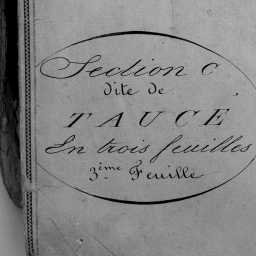 Section C
dite de
TAUCE
En trois feuilles
3ème Feuille